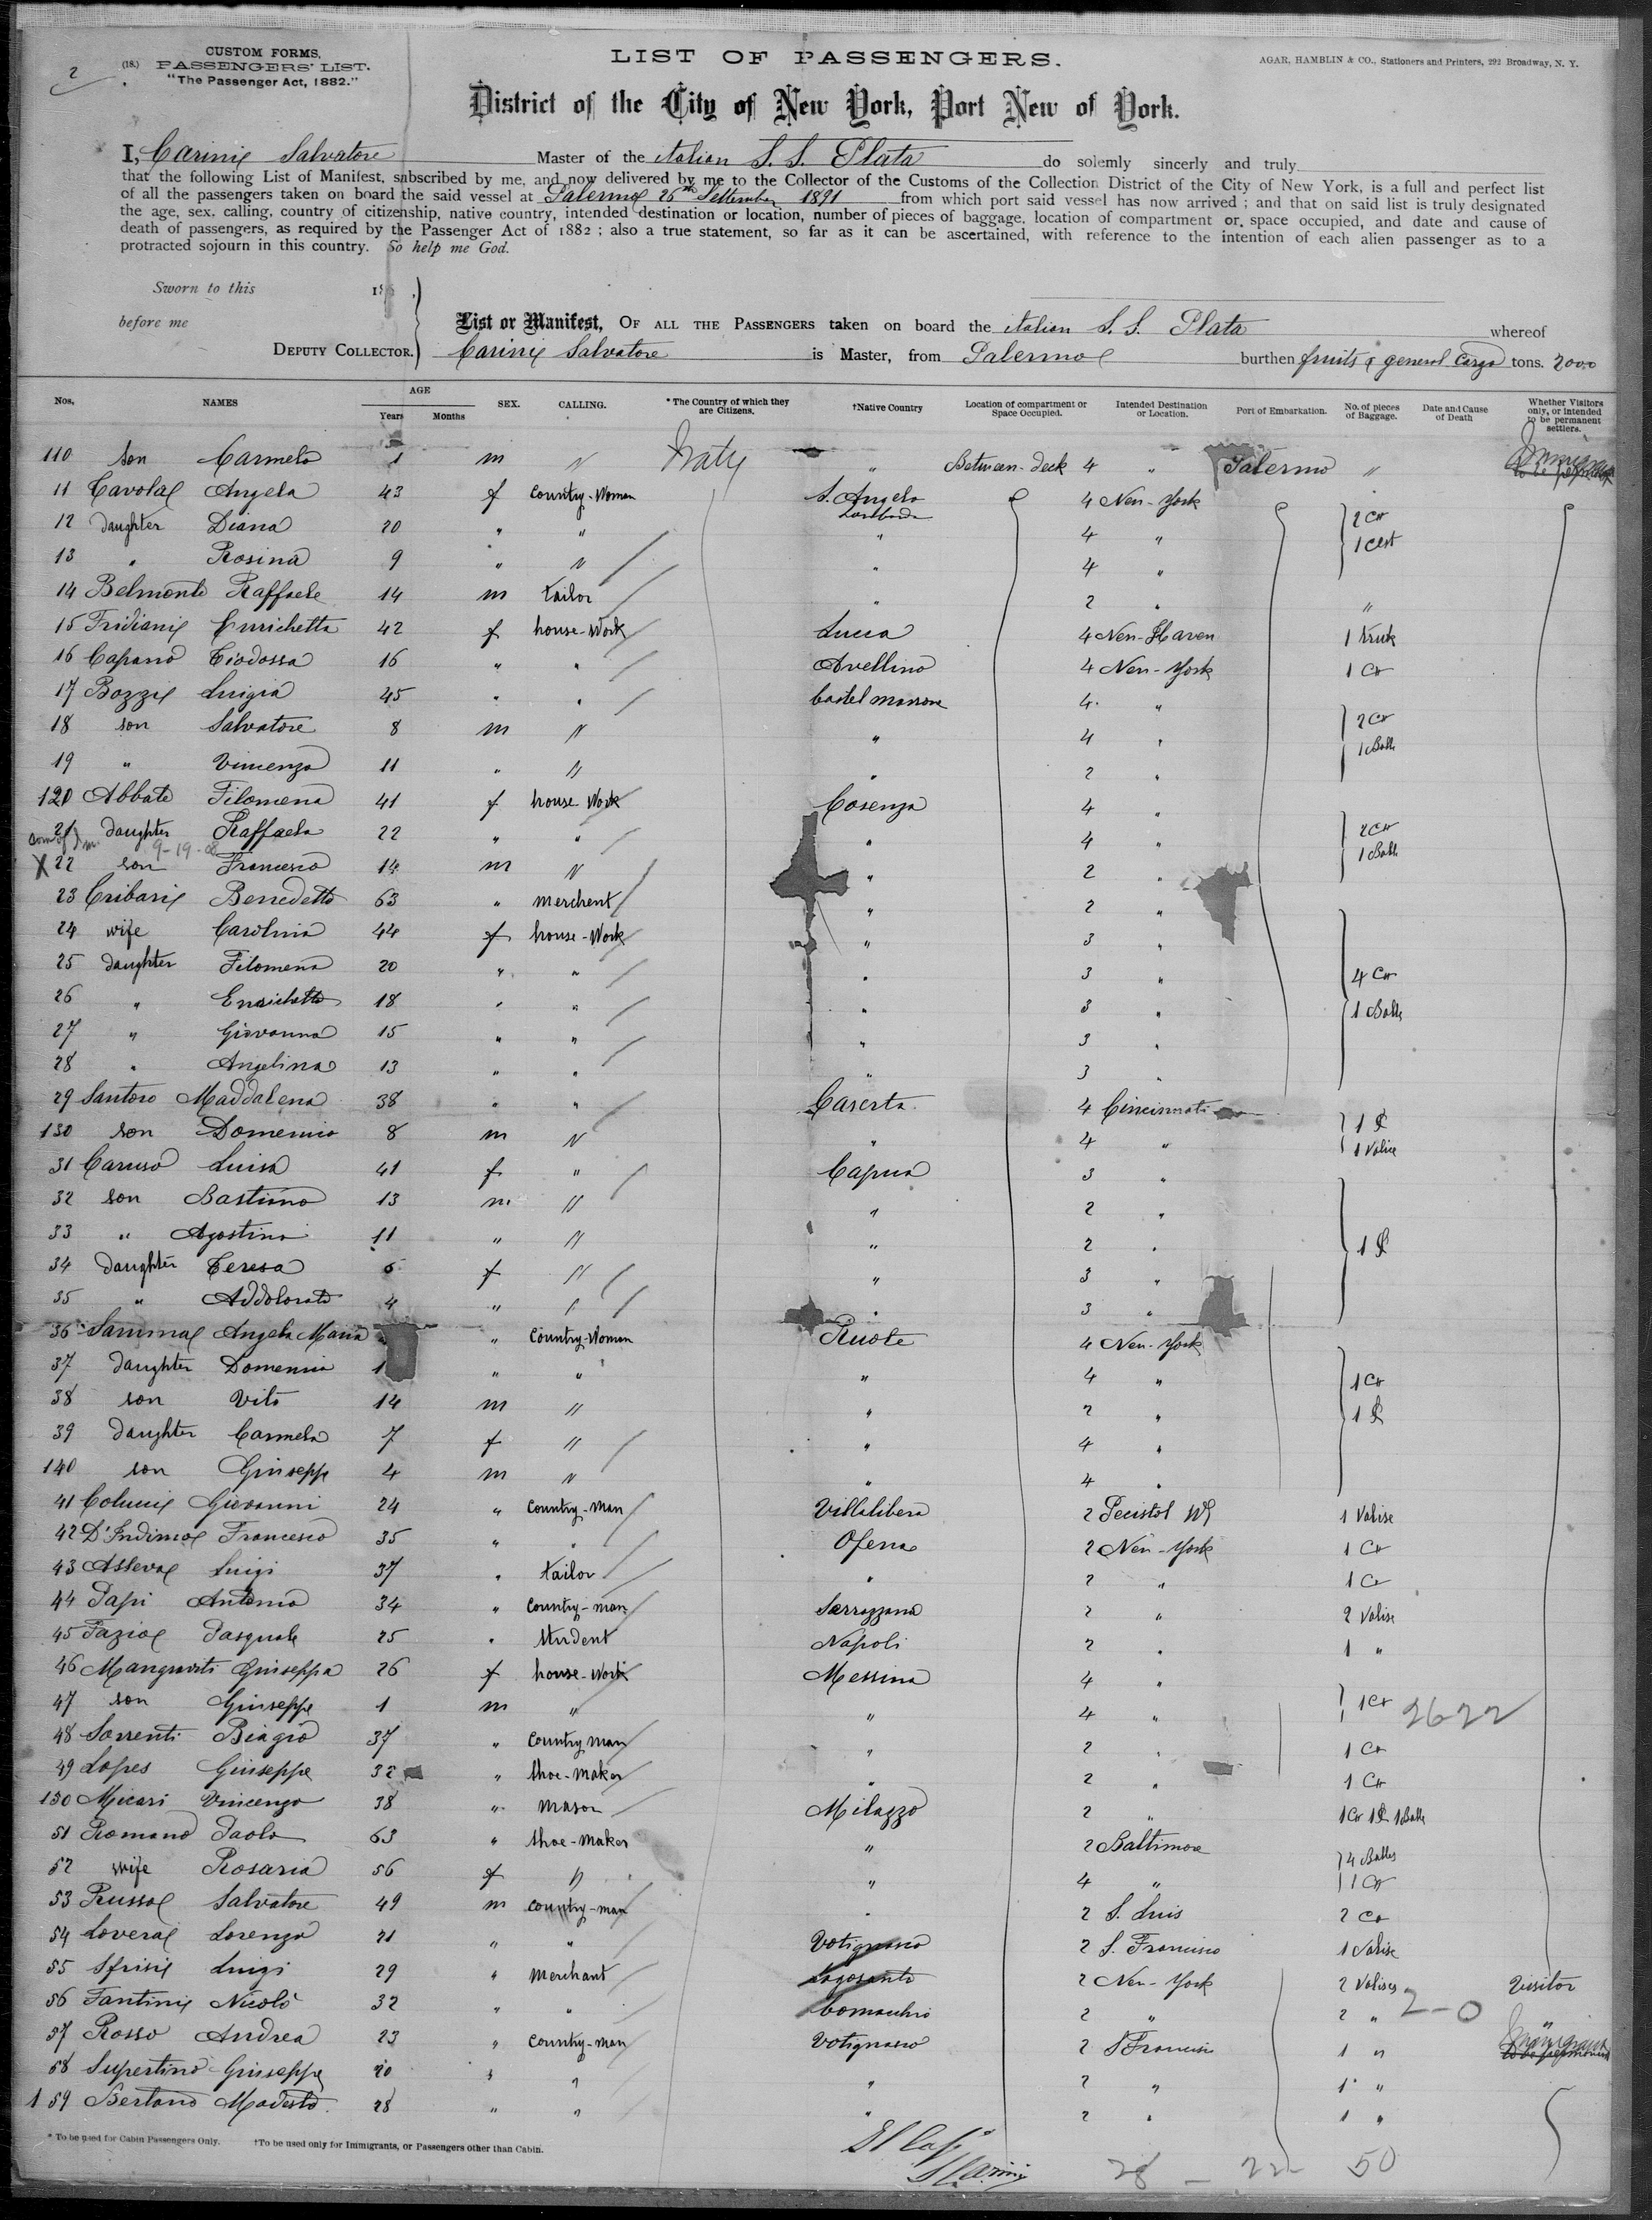 2
CUSTOM FORMS.
(18.) PASSENGERS' LIST.
"The Passenger Act, 1882."
LIST OF PASSENGERS.
AGAR, HAMBLIN & CO., Stationers and Printers, 292 Broadway, N. Y.
District of the City of New York, Port New of York.
I, Carinij Salvatore Master of the italian S. S. Plata do solemly sincerly and truly
that the following List of Manifest, subscribed by me, and now delivered by me to the Collector of the Customs of the Collection District of the City of New York, is a full and perfect list
of all the passengers taken on board the said vessel at Palermo 26th Settember 1891 from which port said vessel has now arrived ; and that on said list is truly designated
the age, sex, calling, country of citizenship, native country, intended destination or location, number of pieces of baggage, location of compartment or space occupied, and date and cause of
death of passengers, as required by the Passenger Act of 1882 ; also a true statement, so far as it can be ascertained, with reference to the intention of each alien passenger as to a
protracted sojourn in this country. So help me God.
Sworn to this 18
before me
List or Manifest, OF ALL THE PASSENGERS taken on board the italian S. S. Plata whereof
DEPUTY COLLECTOR. Carinij Salvatore is Master, from Palermo burthen fruits & general cargo tons. 2000
Nos. NAMES AGE Years Months SEX. CALLING. * The Country of which they are Citizens. †Native Country Location of compartment or Space Occupied. Intended Destination or Location. Port of Embarkation. No. of pieces of Baggage. Date and Cause of Death Whether Visitors only, or intended to be permanent settlers.
110 son Carmelo 1 m " Italy " Between-deck 4 " Palermo "
11 Cavola Angela 43 f Country-Woman S. Angelo Lombardi 4 New-York
12 daughter Diana 20 " " " 4 " 2 Co
13 " Rosina 9 " " " 4 " 1 Cest
14 Belmonte Raffaele 14 m tailor " 2 " "
15 Fridiani Enrichetta 42 f house-Work Lucca 4 New-Haven 1 trunk
16 Capano Teodossa 16 " " Avellino 4 New-York 1 Co
17 Bozzi Luigia 45 " " Castel Morrone 4 "
18 son Salvatore 8 m " " 4 " 2 Co
19 " Vincenzo 11 " " " 2 " 1 Balle
120 Abbate Filomena 41 f house Work Cosenza 4 "
21 daughter Raffaela 22 " " " 4 " 2 Co
9-19-08
X 22 son Francesco 14 m " " 2 " 1 Balle
23 Cribari Benedetto 63 " merchent " 2 "
24 wife Carolina 44 f house-Work " 3 "
25 daughter Filomena 20 " " " 3 " 4 Co
26 " Enrichetta 18 " " " 3 " 1 Balle
27 " Giovanna 15 " " " 3 "
28 " Angelina 13 " " " 3 "
29 Santoro Maddalena 38 " " Caserta 4 Cincinnati
130 son Domenico 8 m " " 4 " 1 Valise
31 Caruso Luisa 41 f " Capua 3 "
32 son Bastiano 13 m " " 2 "
33 " Agostino 11 " " " 2 "
34 daughter Teresa 6 f " " 3 "
35 " Addolorata 4 " " " 3 "
36 Samma Angela Maria " Country-Woman Ruote 4 New-York
37 daughter Domenica 1 " " " 4 " 1 Co
38 son Vito 14 m " " 2 "
39 daughter Carmela 7 f " " 4 "
140 son Giuseppe 4 m " " 4 "
41 Colucci Giovanni 24 " Country-Man Villalibera 2 1 Valise
42 D'Indimo Francesco 35 " " Ofena 2 New-York 1 Co
43 Luigi 37 " tailor " 2 " 1 Co
44 Papi Antonio 34 " Country-man Sarrazzana 2 " 2 Valise
45 Fazio Pasquale 25 " student Napoli 2 " 1 "
46 Mangraviti Giuseppa 26 f house-Work Messina 4 "
47 son Giuseppe 1 m " " 4 " 1 Co 2622
48 Sorrenti Biagio 37 " Country man " 2 " 1 Co
49 Lopes Giuseppe 32 " shoe-maker " 2 " 1 Co
150 Micari Vincenzo 38 " mason Milazzo 2 " 1 Co 1 Balle
51 Romano Paolo 63 " shoe-maker " 2 Baltimore 4 Balles
52 wife Rosaria 56 f " " 4 " 1 Co
53 Russo Salvatore 49 m country-man " 2 S. Luis 2 Co
54 Lovera Lorenzo 21 " " Votignasco 2 S. Francisco 1 Valise
55 Sfrisi Luigi 29 " Merchant Lagosanto 2 New-York 2 Valises Visitor
56 Fantini Nicolò 32 " " Comacchio 2 " 2 " 2-0 "
57 Rosso Andrea 23 " Country-man Votignasco 2 S Francisco 1 "
58 Supertino Giuseppe 20 " " " 2 " 1 "
159 Bertano Modesto 28 " " " 2 " 1 "
* To be used for Cabin Passengers Only. †To be used only for Immigrants, or Passengers other than Cabin.
Il Cap°
28 - 22 50